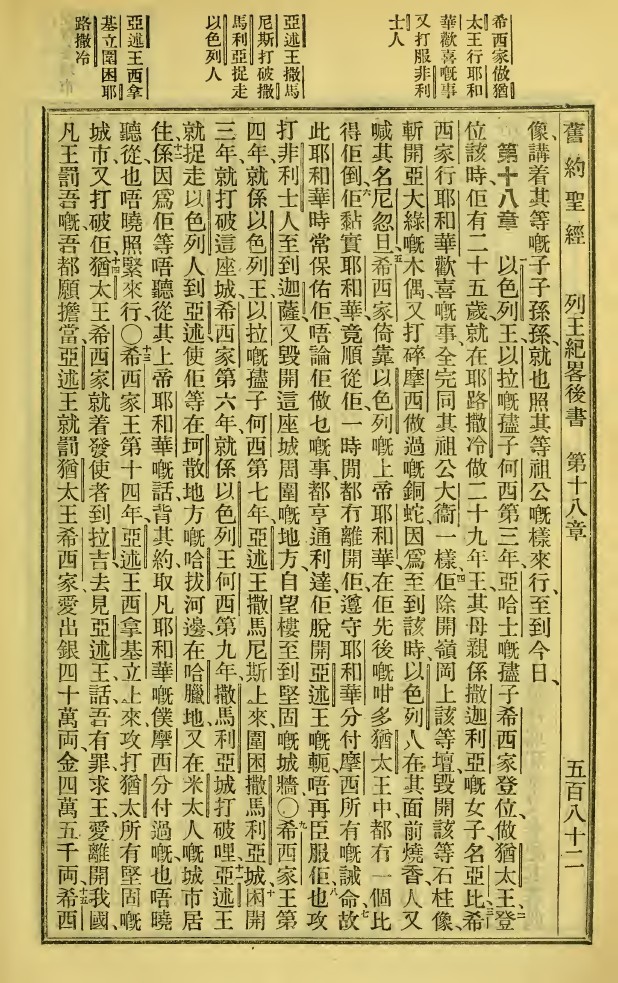 希西家做猶
太王行耶和
華歡喜嘅事
又打服非利
士人
亞述王撒馬
尼斯打破撒
馬利亞捉走
以色列人
亞述王西拿
基立圍困耶
路撒冷
舊約聖經 列王紀畧後書 第十八章 五百八十二
像、講着其等嘅子子孫孫、就也照其等祖公嘅樣來行、至到今日、
第十八章 一以色列王以拉嘅孻子何西第三年、亞哈士嘅孻子希西家登位、做猶太王、二登
位該時佢有二十五歲、就在耶路撒冷做二十九年王、其母親係撒迦利亞嘅女子名亞比、三希
西家行耶和華歡喜嘅事、全完同其祖公大衛一樣、四佢除開嶺岡上該等壇、毀開該等石柱像、
斬開亞大綠嘅木偶、又打碎摩西做過嘅銅蛇、因爲至到該時、以色列人在其面前燒香、人又
喊其名尼忽旦、五希西家倚靠以色列嘅上帝耶和華、在佢先後嘅咁多猶太王中都冇一個比
得佢倒、六佢黏實耶和華、竟順從佢、一時閒都冇離開佢、遵守耶和華分付摩西所有嘅誡命、七故
此耶和華時常保佑佢、唔論佢做乜嘅事、都亨通利達、佢脫開亞述王嘅軛、唔再臣服佢、八也攻
打非利士人至到迦薩、又毀開這座城周圍嘅地方、自望樓至到堅固嘅城牆、〇九希西家王第
四年、就係以色列王以拉嘅孻子何西第七年、亞述王撒馬尼斯上來、圍困撒馬利亞城、十困開
三年就打破這座城、希西家第六年、就係以色列王何西第九年、撒馬利亞城打破哩、十一亞述王
就捉走以色列人到亞述、使佢等在坷散地方嘅哈拔河邊、在哈臘地、又在米太人嘅城市居
住、十二係因爲佢等唔聽從其上帝耶和華嘅話、背其約、取凡耶和華嘅僕摩西分付過嘅、也唔曉
聽從、也唔曉照緊來行、〇十三希西家王第十四年、亞述王西拿基立上來、攻打猶太所有堅固嘅
城市、又打破佢、十四猶太王希西家就着發使者到拉吉、去見亞述王話、吾有罪、求王愛離開我國、
凡王罰吾嘅、吾都願擔當、亞述王就罰猶太王希西家、愛出銀四十萬両、金四萬五千両、十五希西